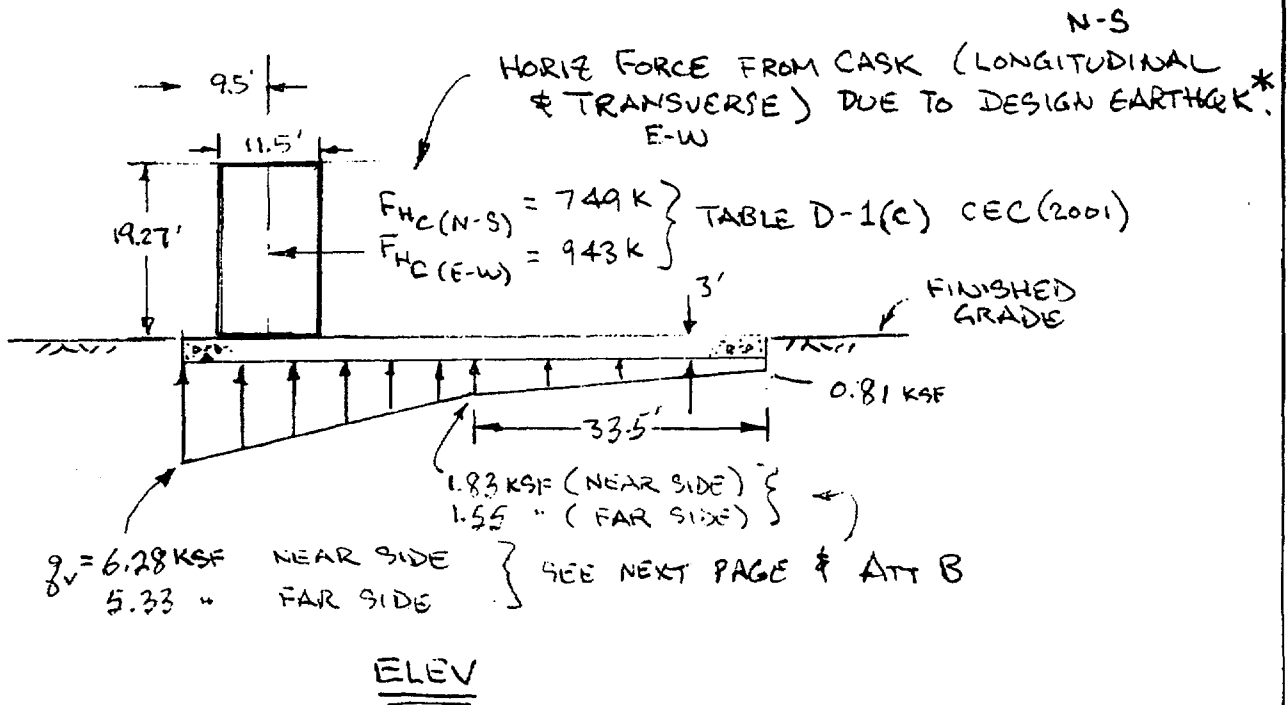 N-S
HORIZ FORCE FROM CASK (LONGITUDINAL
& TRANSVERSE) DUE TO DESIGN EARTHQK*.
E-W
9.5'
11.5'
19.27'
FHC(N-S) = 749 K } TABLE D-1(C) CEC(2001)
FHC(E-W) = 943 K
3'
FINISHED
GRADE
0.81 KSF
33.5'
1.83 KSF (NEAR SIDE)
1.55 " (FAR SIDE)
qv = 6.28 KSF NEAR SIDE } SEE NEXT PAGE & ATT B
5.33 " FAR SIDE
ELEV